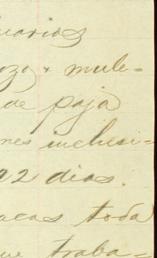 uarios
oza x mule-
de paja
nes inclusi-
92 dias.
acas toda
ue traba-